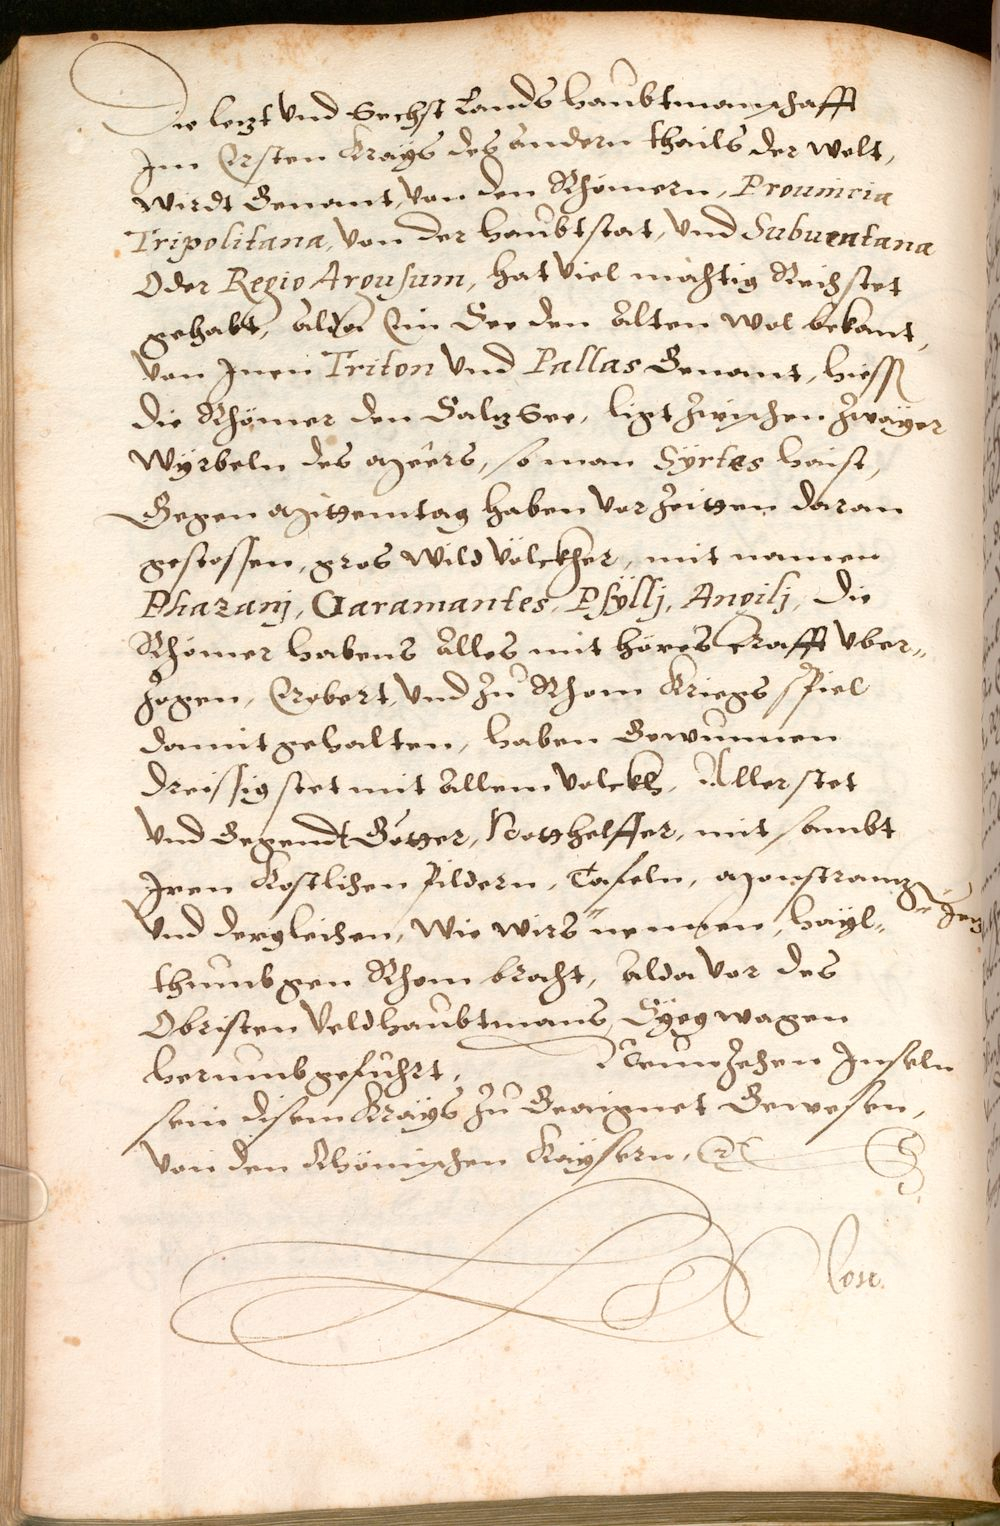 Die lezt Vnd Sechst Lands haubtmanschafft
Im Ersten Krayß des andern thails der welt,
wirdt Genant, Von den Rhömern, Prouincia
Tripolitana, Von der haubtstat, Vnd Subuentana
Oder Regio Arzusum, hat Viel mächtig Reich stet
gehabt, alda Ein See den Alten wol bekant,
Von Inen Triton Vnd Pallas Genant, hiess
die Rhömer den Salz See, ligt Zwischen Zwayer
Wyrbeln des Meers, so man Syrtes haist,
Gegen Mittemtag haben Vor Zeitten daran
gestossen, gros wild Völckher, mit namen
Phazanj, Garamantes, Psÿllj, Angilj, Die
Rhömer habens Alles mit höres crafft Vber=
Zogen, Erobert, Vnd Zu Rhom Kriegs spiel
damit gehalten, haben Gewunnen
dreissig stet mit Allem Volckh, Aller stet
Vnd Gegendt Götter, Notthelffer, mit sambt
Iren Kostlichen Pildern, Tafeln, Monstranzen
Vnd dergleichen, Wie wirs nennen, hayl=
thumb gen Rhom bracht, alda Vor des
Obristen Veldhaubtmans, Syeg wagen
herumb gefuhrt, Neun Zehen Inseln
sein disem Krayß Zu Geaignet Gewesen,
Von den Rhömischen Kaysern, Etc
Von